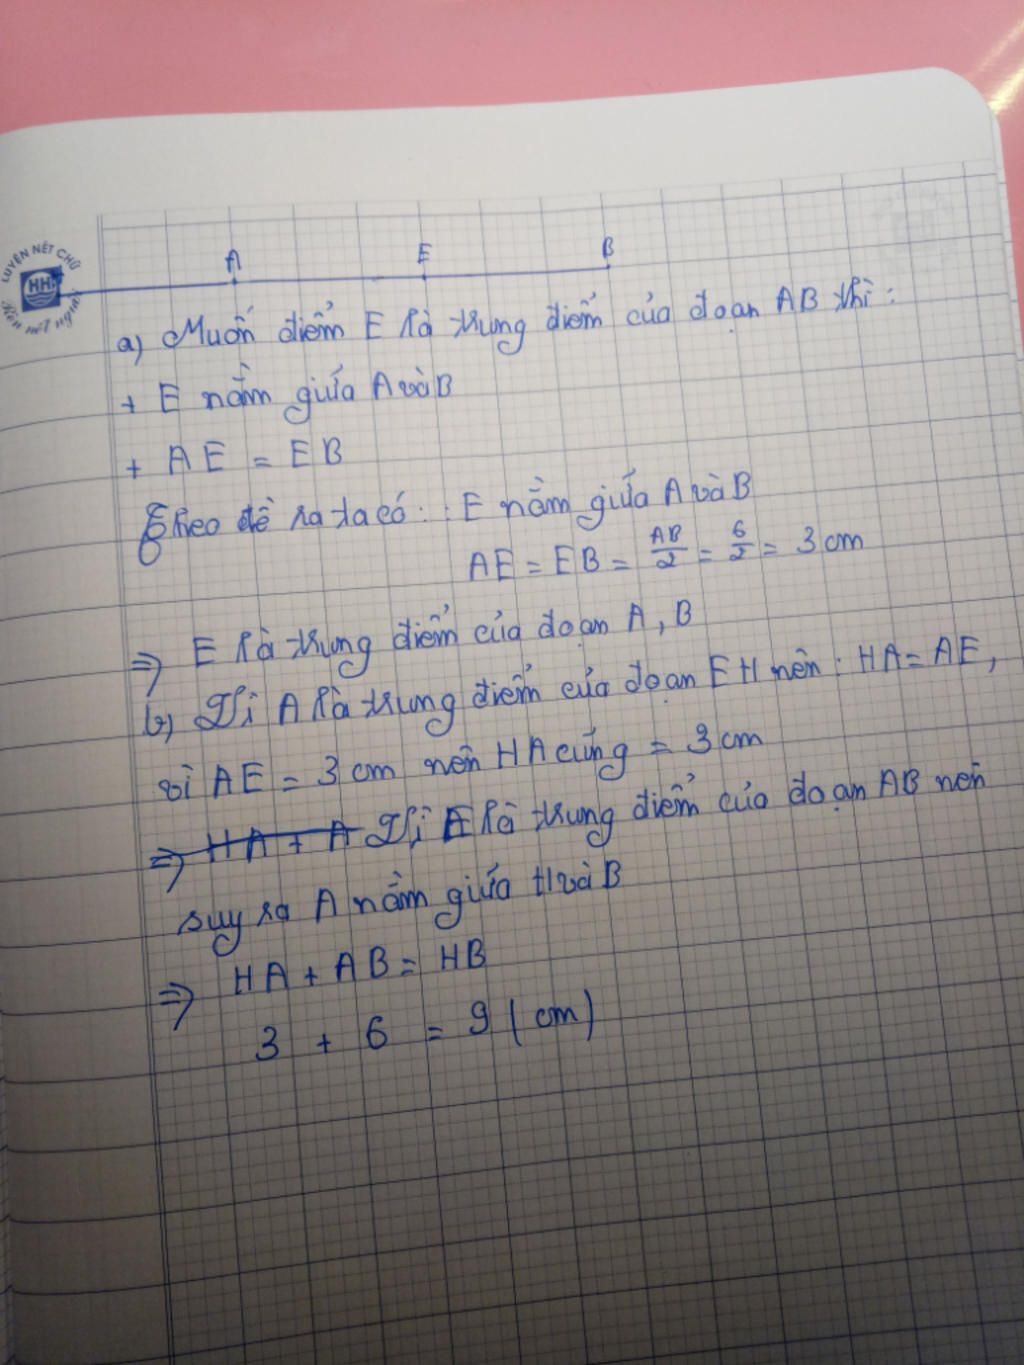 LUYỆN NÉT CHỮ
HH
Rèn nết người
A E B
a) Muốn điểm E là trung điểm của đoạn AB thì:
+ E nằm giữa A và B
+ AE = EB
Theo đề ra ta có: : E nằm giữa A và B
AE = EB = AB/2 = 6/2 = 3 cm
=> E là trung điểm của đoạn A, B
b) Vì A là trung điểm của đoạn EH nên: HA = AE,
vì AE = 3 cm nên HA cũng = 3 cm
=> HA + A Vì E là trung điểm của đoạn AB nên
suy ra A nằm giữa H và B
=> HA + AB = HB
3 + 6 = 9 (cm)